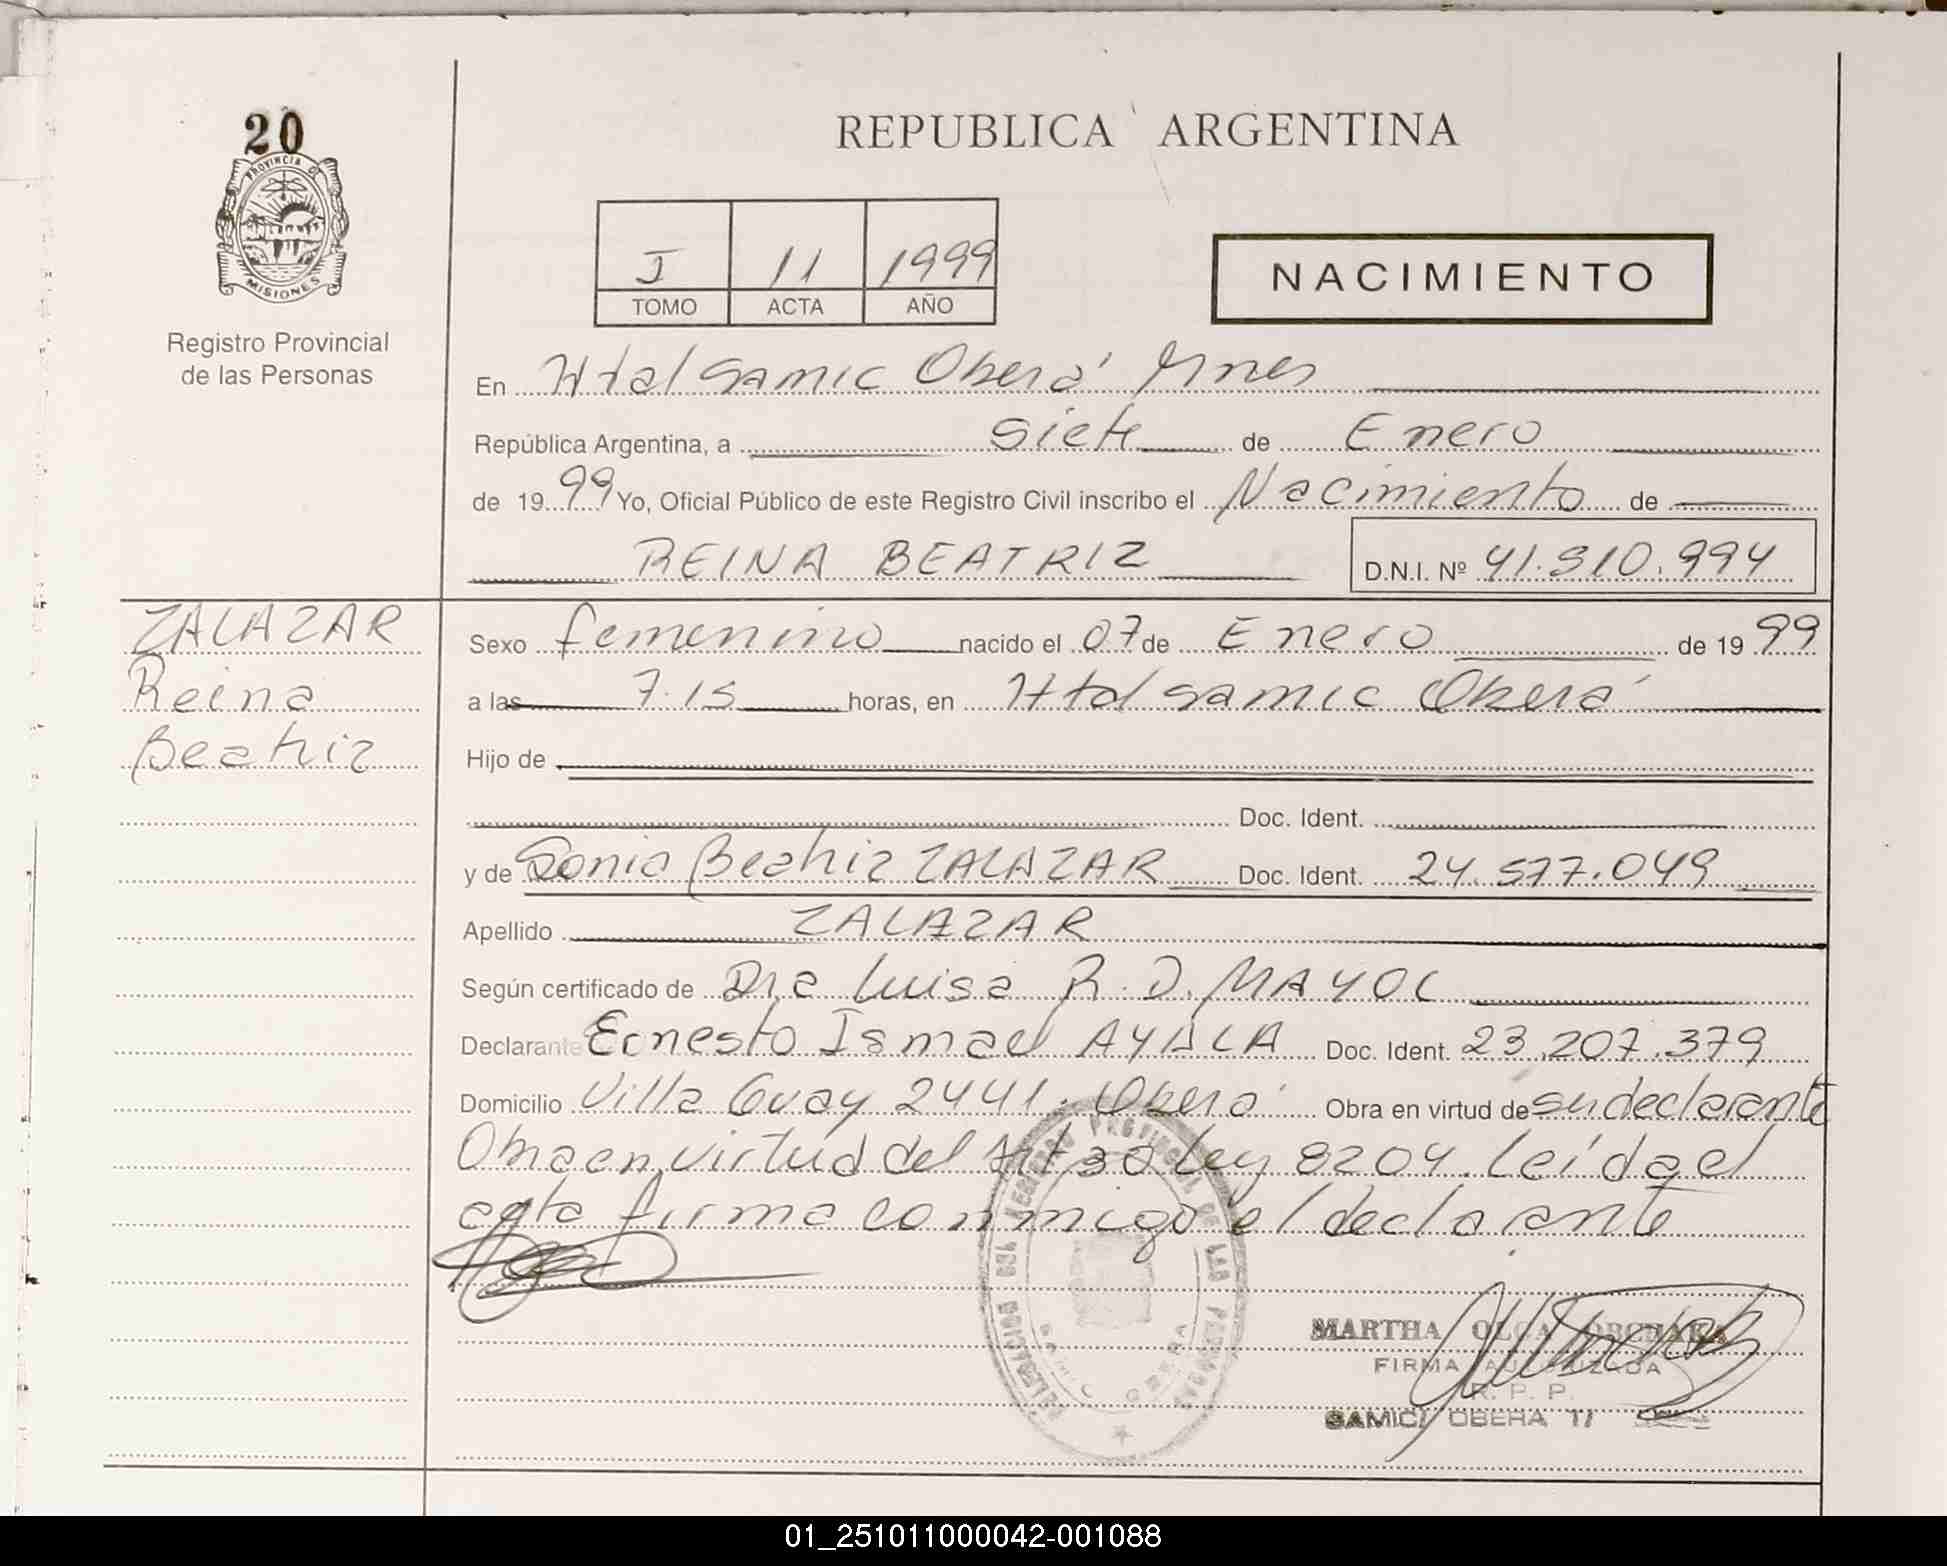 20
PROVINCIA DE
MISIONES
Registro Provincial
de las Personas
REPUBLICA ARGENTINA
I 11 1999
TOMO ACTA AÑO
NACIMIENTO
En Htal Samic Oberá Mnes
República Argentina, a siete de Enero
de 1999 Yo, Oficial Público de este Registro Civil inscribo el Nacimiento de
REINA BEATRIZ D.N.I. Nº 41.310.994
ZALAZAR
Reina
Beatriz
Sexo femenino nacido el 07 de Enero de 1999
a las 7.15 horas, en Htal Samic Oberá
Hijo de
Doc. Ident.
y de Sonia Beatriz ZALAZAR Doc. Ident. 24.577.049
Apellido ZALAZAR
Según certificado de Dra Luisa R. D. MAYOL
Declarante Ernesto Ismael AYALA Doc. Ident. 23.207.379
Domicilio Villa Guay 2441. Oberá Obra en virtud de su declarante
Obra en virtud del Art 30 Ley 8204. Leída el
acta firma conmigo el declarante
DELEGACION DEL REGISTRO PROVINCIAL DE LAS PERSONAS
SAMIC OBERA
MARTHA OLGA
FIRMA AUTORIZADA
R. P. P.
SAMIC OBERA
01_251011000042-001088